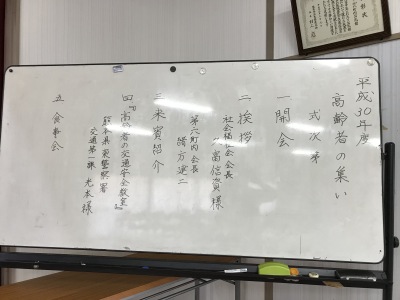 平成30年度
高齢者の集い
式次第
一 開会
二 挨拶
社会福祉会会長
高信資様
第六町内会長
緒方運二
三 来賓紹介
四『高齢者の交通安全教室』
熊本県東警察署
交通第一課 光本様
五 食事会